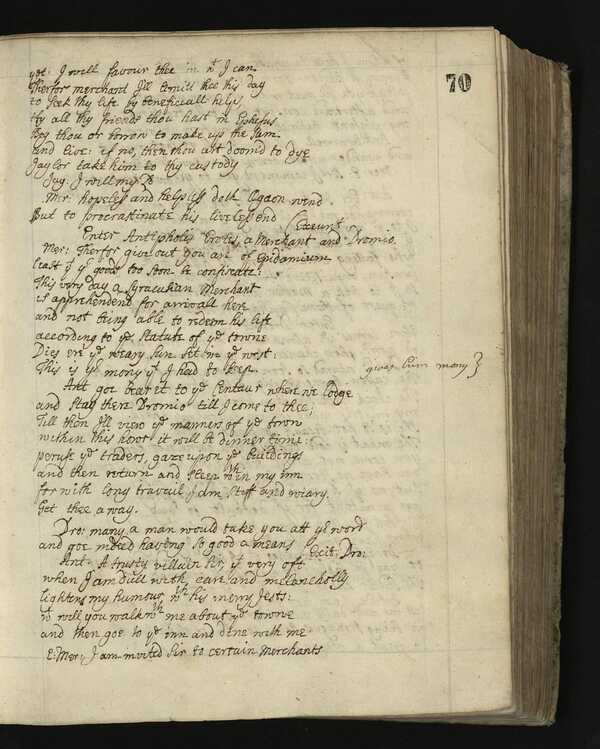 70
yet: I will favour thee in wt I can
Therfor merchant I'll limitt thee this day
to seek thy life by beneficiall help,
try all thy friends thou hast in Ephesus
Beg thou or borrow to make up the sum
and live: if no, then thou art doom'd to dye
Jaylor take him to thy custody
Jay: I will my Ld
Mer: hopeless and helpless doth Egaon wend
But to procrastinate his liveless end
(Exeunt
Enter Antipholis Erotes, a Merchant and Dromio.
Mer: Therfor give out you are of Epidamium
least yt yr goods too soon be confiscate:
This very day a Syracusian Merchant
is apprehendend for arrivall here
and not being able to redeem his life
according to ye statute of ye towne
Dies ere ye weary sun set in ye west:
This is yr mony yt I had to keep. gives him mony}
Ant goe bear it to ye Centaur where we lodge
and stay there Dromio till I come to thee;
Till then I'll view ye manners of ye town
within this hour it will be dinner time:
peruse ye traders, gaze upon ye buildings
and then return and sleep wthin my inn
for with long travail I am stiff and weary.
Get thee away.
Dro: many a man would take you att yr word
and goe indeed having so good a means
(Exit: Dro:
Ant: A trusty villain sir, yt very oft
when I am dull with, care and melancholly
lightens my humour wth his merry Jests:
wt will you walk wth me about ye towne
and then goe to ye inn and dine with me
E: Mer: I am invited sir to certain Merchants